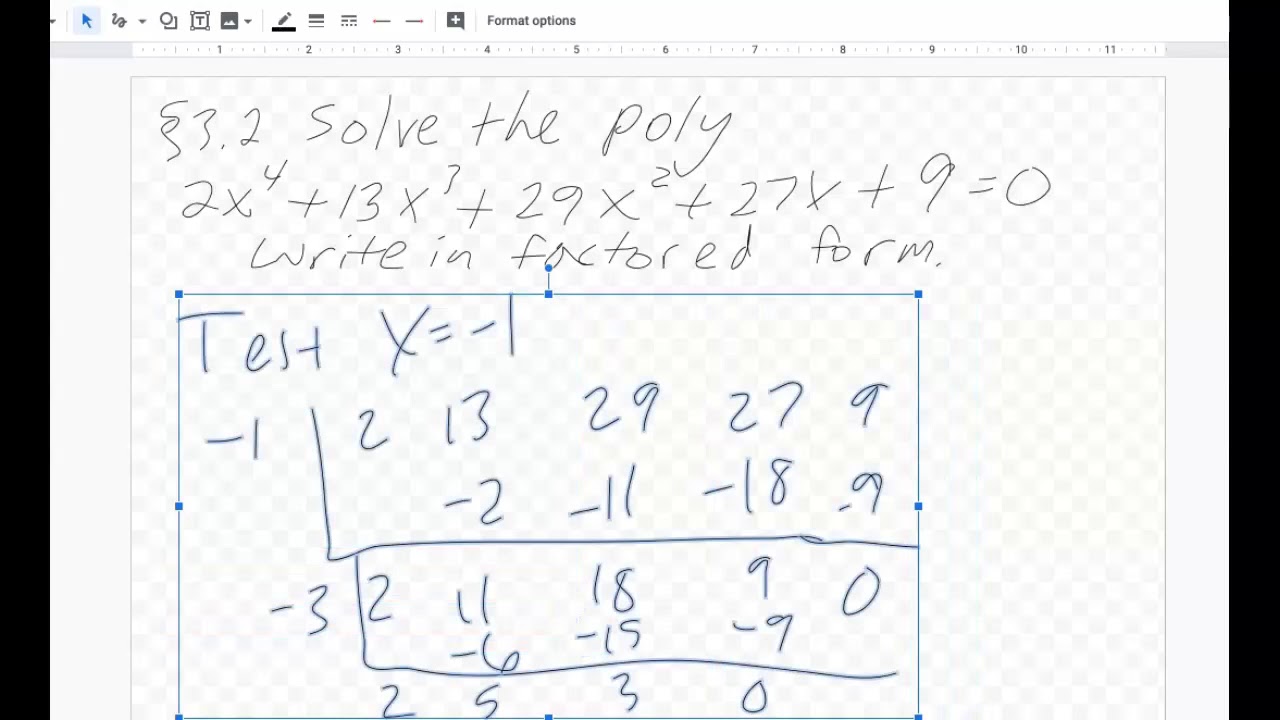 Format options
1 2 3 4 5 6 7 8 9 10 11
§3.2 Solve the poly
2x⁴ + 13x³ + 29x² + 27x + 9 = 0
write in factored form.
Test x = -1
-1 2 13 29 27 9
-2 -11 -18 -9
-3 2 11 18 9 0
-6 -15 -9
2 5 3 0